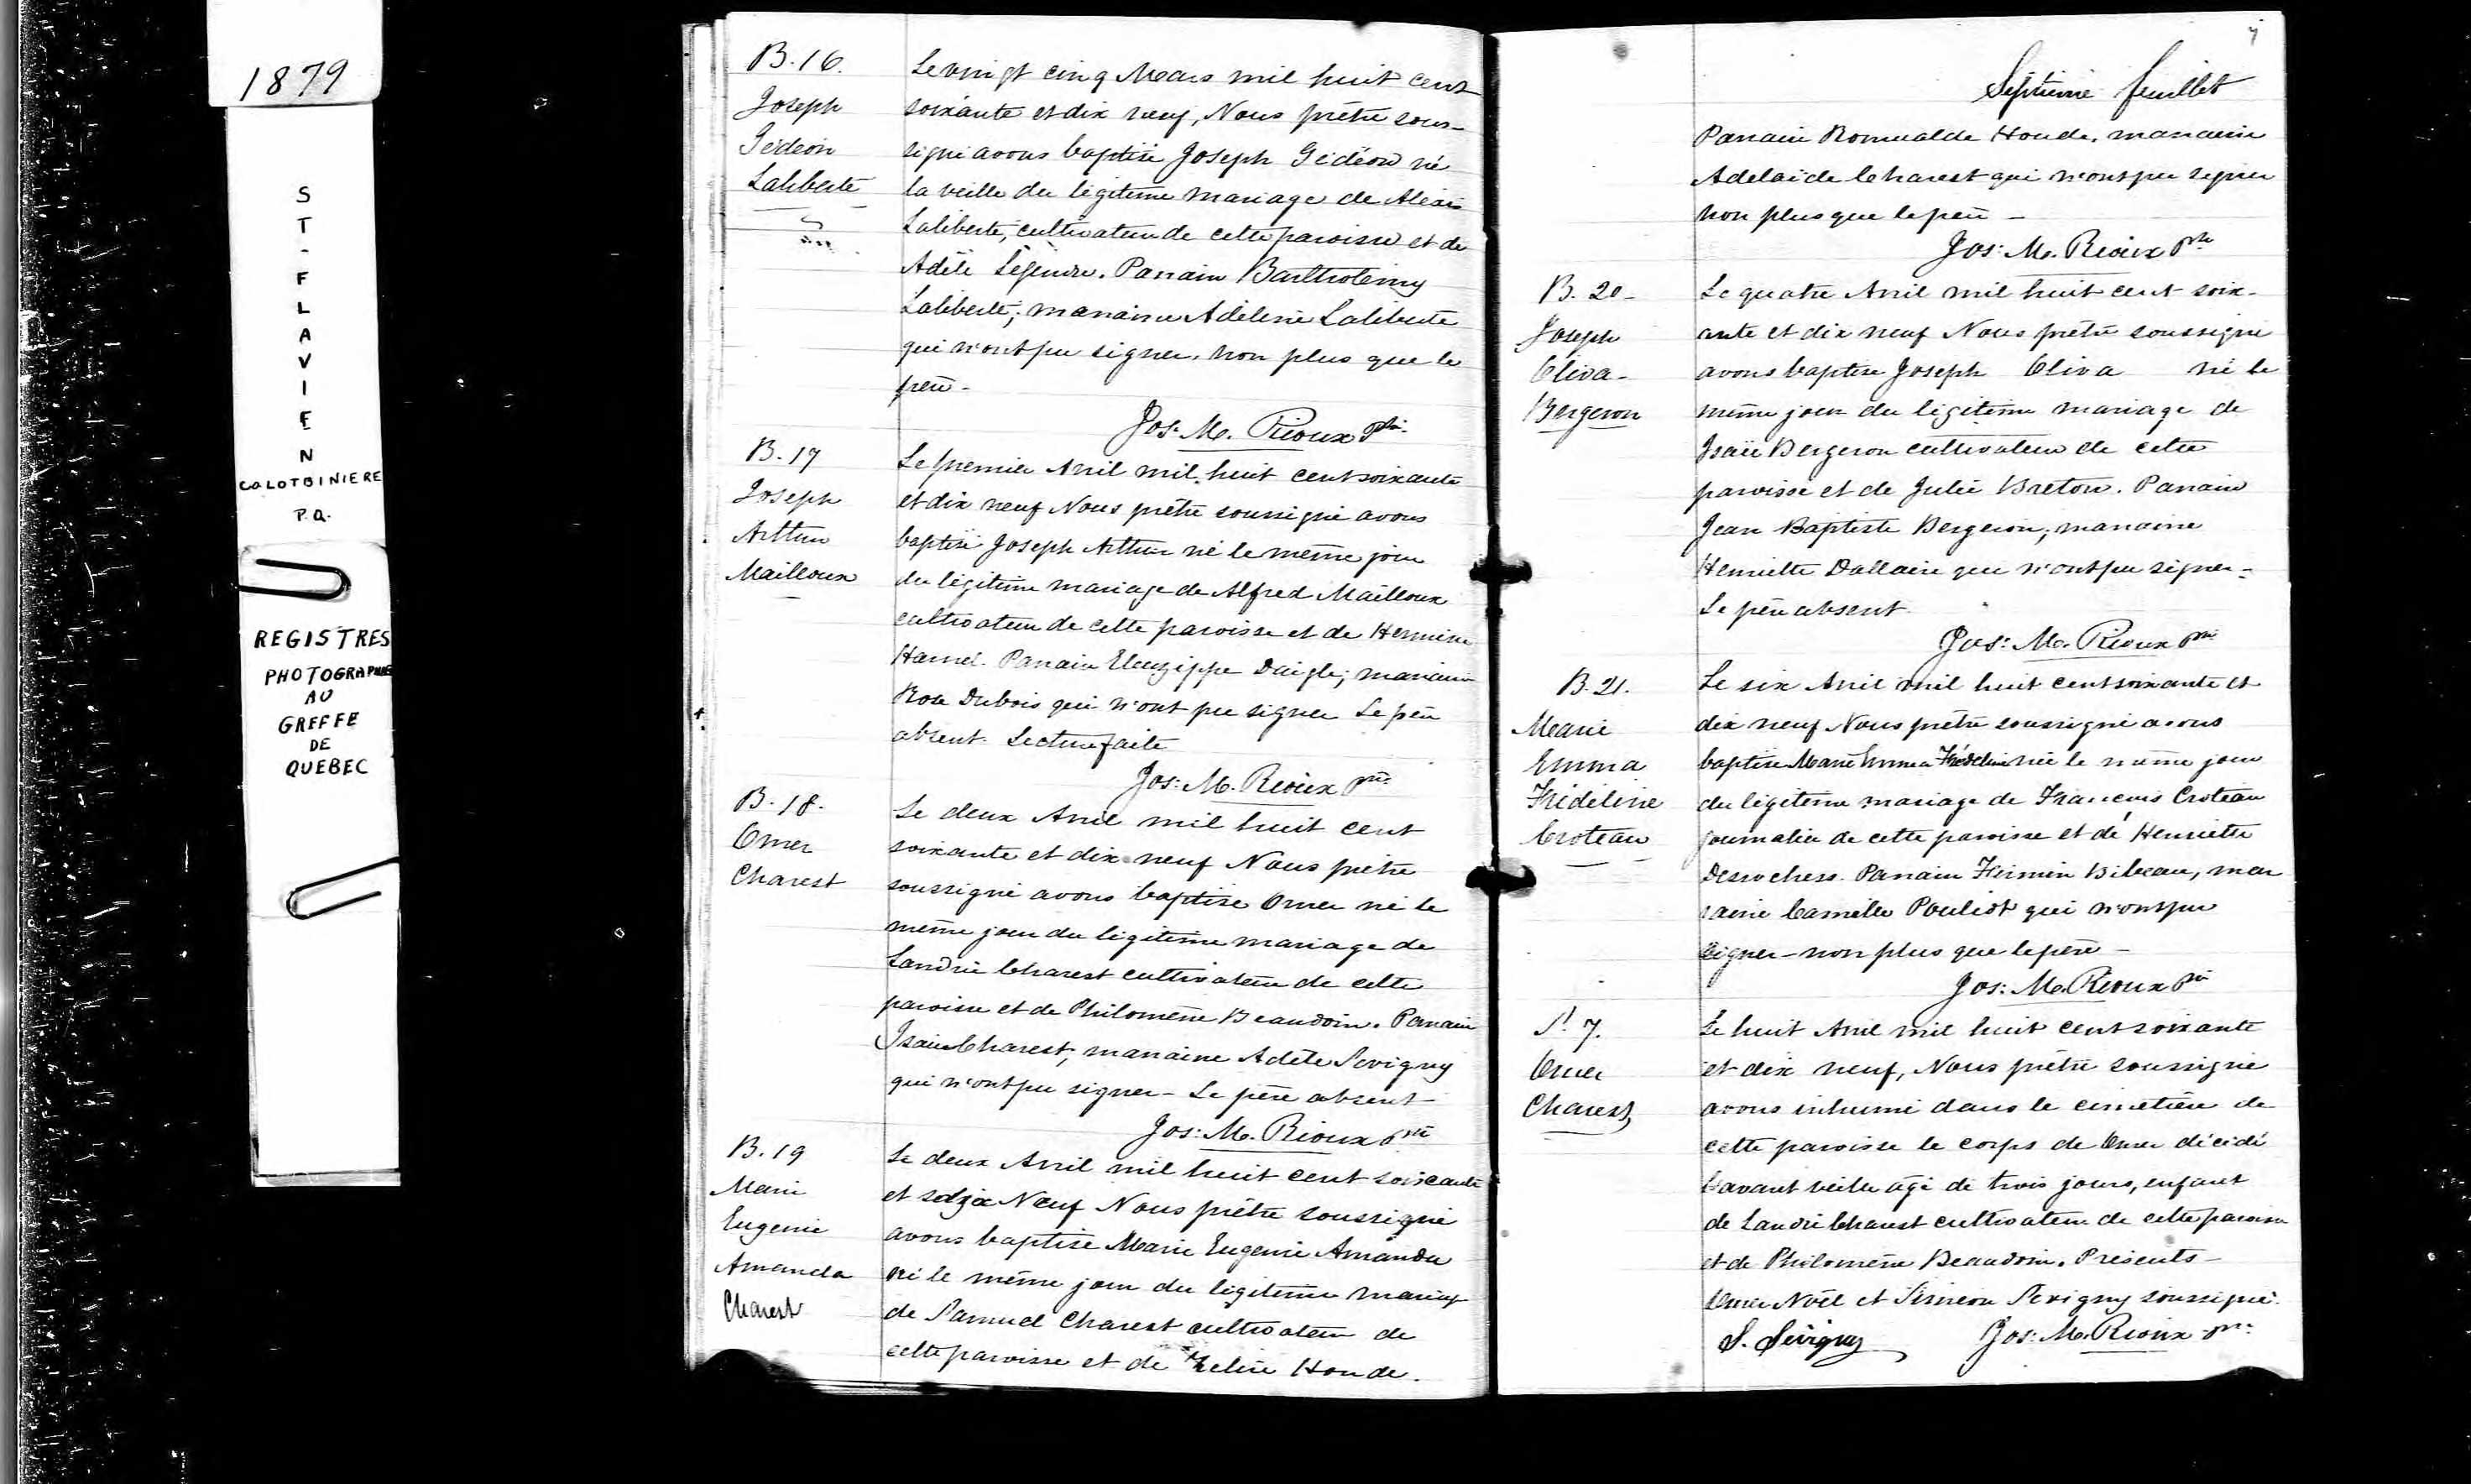 1879
S
T
-
F
L
A
V
I
E
N
CO LOTBINIERE
P.Q.
REGISTRES
PHOTOGRAPHIÉS
AU
GREFFE
DE
QUEBEC
B. 16.
Joseph
Gédéon
Laliberté
Le vingt cinq Mars mil huit cent
soixante et dix neuf, Nous prêtre sous-
signé avons baptisé Joseph Gédéon né
la veille du légitime mariage de Alexis
Laliberté, cultivateur de cette paroisse et de
Adèle Legendre. Parrain Barthelemy
Laliberté; marraine Adéline Laliberté
qui n'ont pu signer, non plus que le
père -
Jos: M. Rioux Ptre
B. 17
Joseph
Arthur
Mailloux
Le premier Avril mil huit cent soixante
et dix neuf Nous prêtre soussigné avons
baptisé Joseph Arthur né le même jour
du légitime mariage de Alfred Mailloux
cultivateur de cette paroisse et de Hermine
Hamel. Parrain Eleuzippe Daigle; marraine
Rose Dubois qui n'ont pu signer Le père
absent. Lecture faite
Jos: M. Rioux Ptre
B. 18.
Omer
Charest
Le deux Avril mil huit cent
soixante et dix neuf Nous prêtre
soussigné avons baptisé Omer né le
même jour du légitime mariage de
Landrie Charest cultivateur de cette
paroisse et de Philomène Beaudoin. Parrain
Isaïe Charest; marraine Adèle Sevigny
qui n'ont pu signer - Le père absent -
Jos: M. Rioux Ptre
B. 19
Marie
Eugenie
Amanda
Charest
Le deux Avril mil huit cent soixante
et dix Neuf Nous prêtre soussigné
avons baptisé Marie Eugenie Amanda
né le même jour du légitime mariage
de Samuel Charest cultivateur de
cette paroisse et de Zeline Houde.
7
Septième feuillet
Parrain Romualde Houde, marraine
Adelaïde Charest qui n'ont pu signer
non plus que le père -
Jos: M. Rioux Ptre
B. 20 -
Joseph
Oliva -
Bergeron
Le quatre Avril mil huit cent soix-
ante et dix neuf Nous prêtre soussigné
avons baptisé Joseph Oliva né le
même jour du légitime mariage de
Isaïe Bergeron cultivateur de cette
paroisse et de Julie Breton. Parrain
Jean Baptiste Bergeron; marraine
Henriette Dallaire qui n'ont pu signer -
Le père absent
Jos: M. Rioux Ptre
B. 21.
Marie
Emma
Fridéline
Croteau
Le six Avril mil huit cent soixante et
dix neuf Nous prêtre soussigné avons
baptisé Marie Emma Fridéline née le même jour
du légitime mariage de François Croteau
journalier de cette paroisse et de Henriette
Desrochers. Parrain Firmin Bibeau, mar
raine Camille Pouliot qui n'ont pu
signer - non plus que le père -
Jos: M. Rioux Ptre
S. 7.
Omer
Charest
Le huit Avril mil huit cent soixante
et dix neuf, Nous prêtre soussigné
avons inhumé dans le cimetière de
cette paroisse le corps de Omer décédé
l'avant veille agé de trois jours, enfant
de Landrie Charest cultivateur de cette paroisse
et de Philomène Beaudoin. Présents -
Omer Noël et Siméon Sevigny soussigné.
S. Sévigny
Jos: M. Rioux Ptre